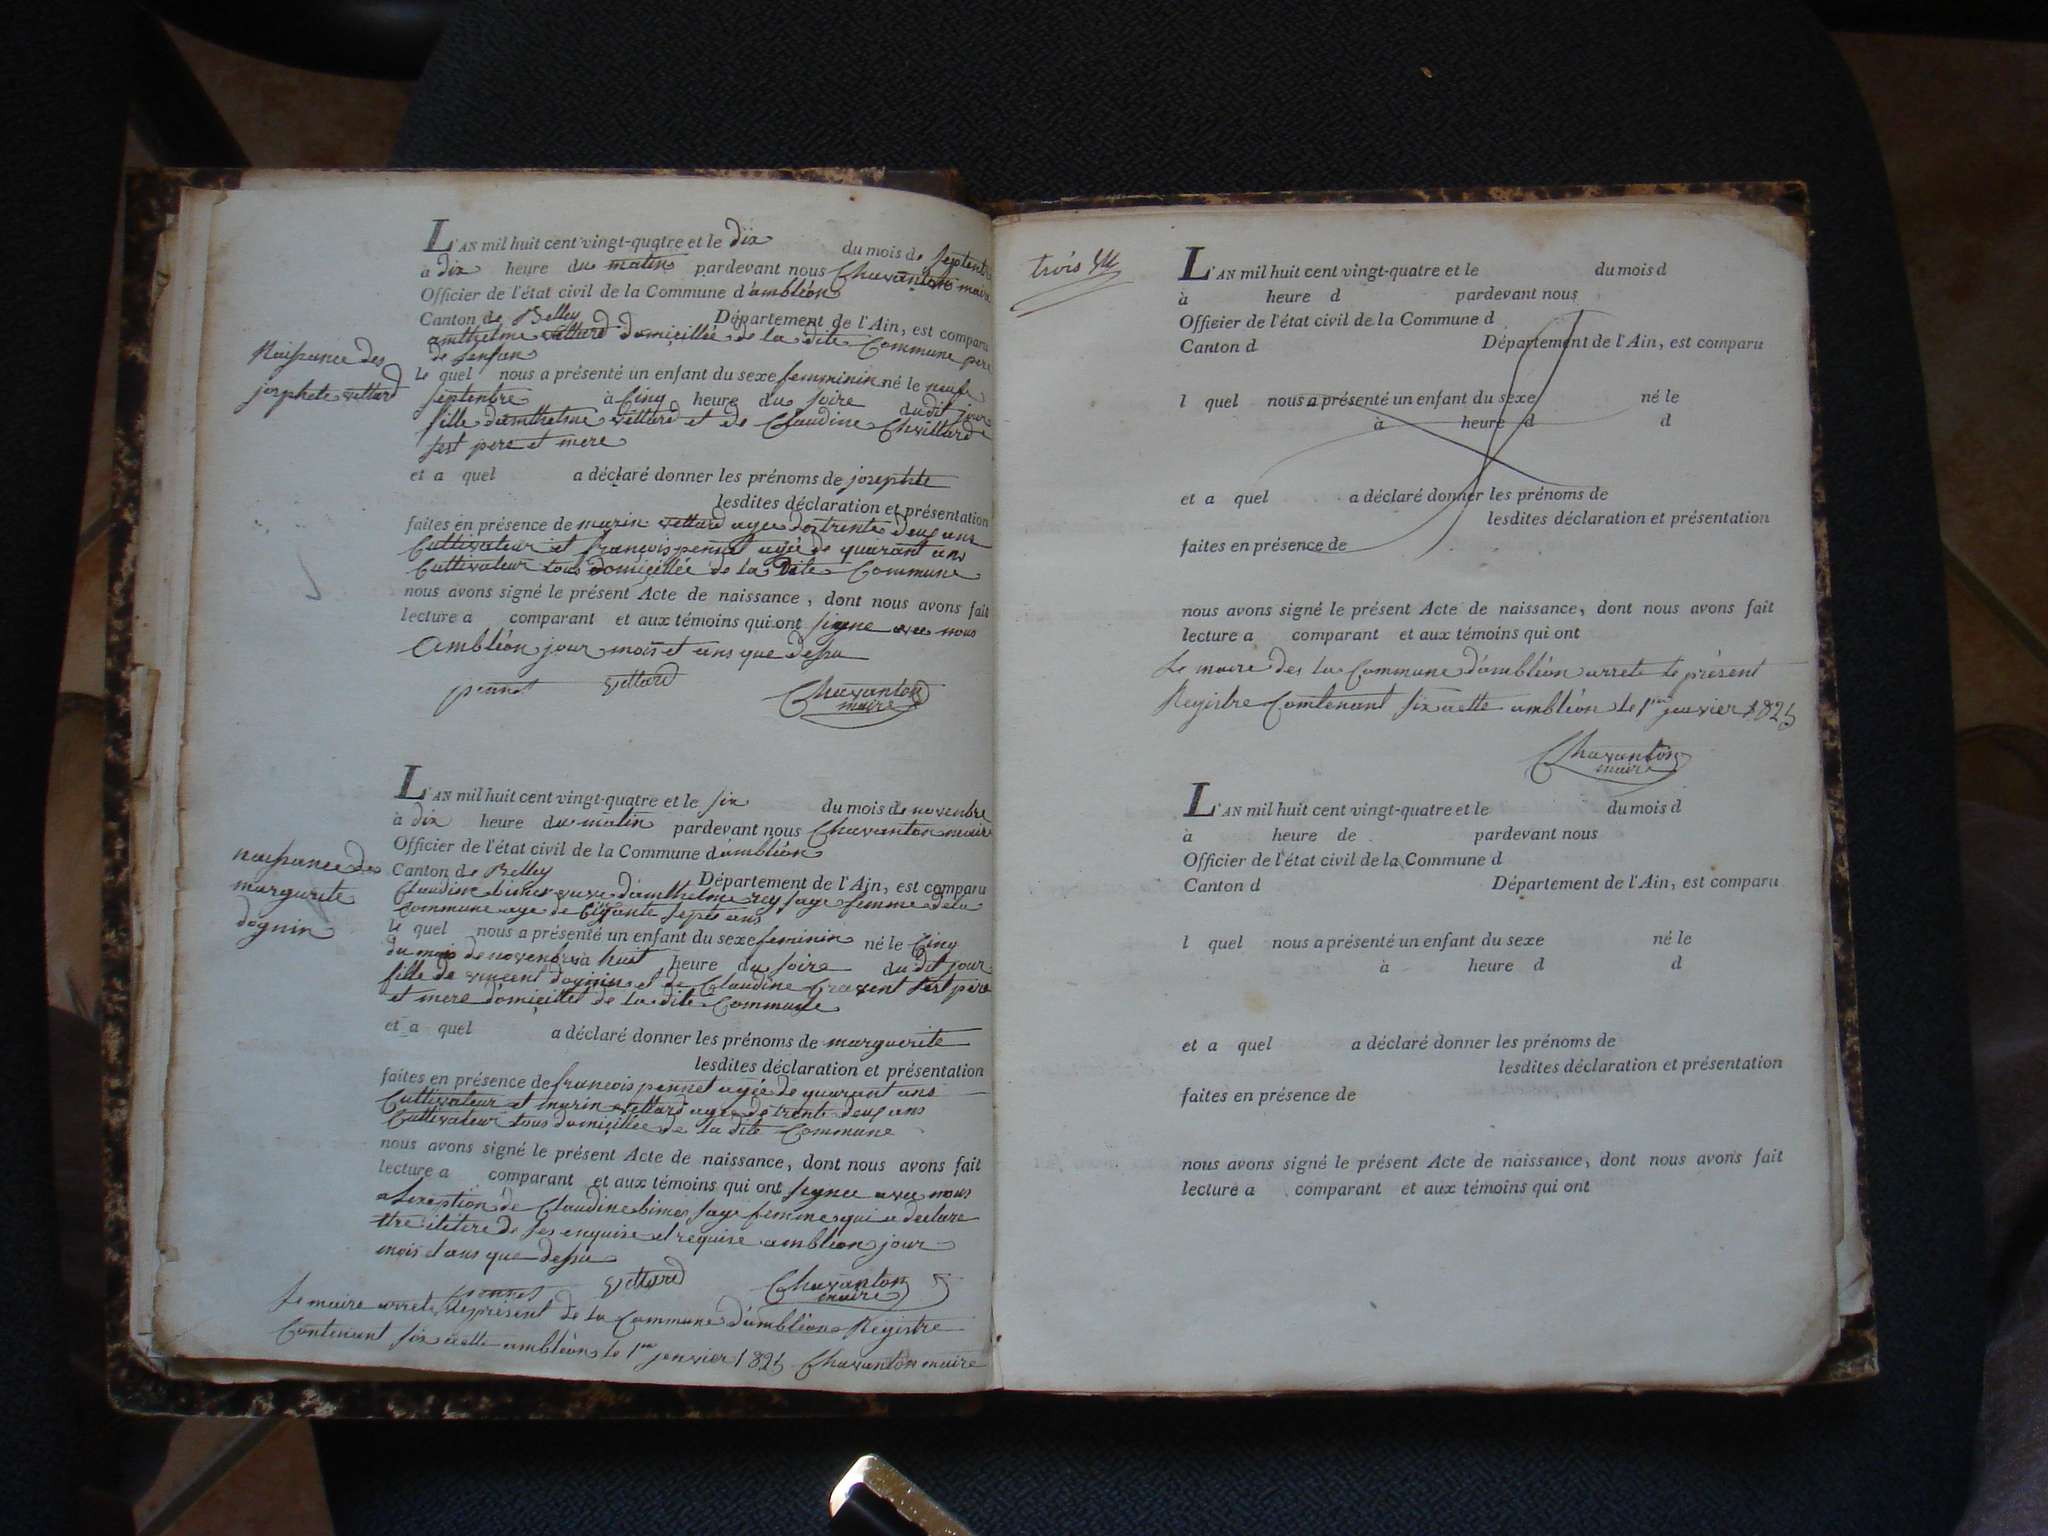 L'AN mil huit cent vingt-quatre et le dix du mois de septembre
a dix heure du matin pardevant nous Chavanton maire
Officier de l'état civil de la Commune d'ambléon
Canton de Belley Département de l'Ain, est comparu
amthelme vettard domicillée de la dite Commune pere
de
Naissance des
josephete vettard
le quel nous a présenté un enfant du sexe femminin né le neuf
septenbre à Cinq heure du soire du dit jour
fille damthelme vettard et de Claudine
sest pere et mere
et a quel a déclaré donner les prénoms de josephte
lesdites déclaration et présentation
faites en présence de marin vettard agee de trente deux ans
Cultivateur et françois pennet agée de quarant ans
Cultivateur tous domicillée de la Dite Commune
nous avons signé le présent Acte de naissance, dont nous avons fait
lecture a comparant et aux témoins qui ont signe avec nous
Ambléon jour mois et ans que dessu
pennet vettard Chavanton
maire
L'AN mil huit cent vingt-quatre et le six du mois de novenbre
à dix heure du matin pardevant nous Chavanton maire
Officier de l'état civil de la Commune d'ambléon
Canton de Belley Département de l'Ain, est comparu
naissance des
marguerite
dognin
Claudine bimet veuve d'amthelme rey sage femme dela
Commune age de septs ans
le quel nous a présenté un enfant du sexe feminin né le Cinq
du mois de novenbre à huit heure du soire du dit jour
fille de vincent dognin et de Claudine sest pere
et mere domicillet de la dite Commune
et a quel a déclaré donner les prénoms de marguerite
lesdites déclaration et présentation
faites en présence de francois pennet agée de quarant ans
Cultivateur et marin vettard agee de trente deux ans
Cultivateur tous domicillée de la dite Commune
nous avons signé le présent Acte de naissance, dont nous avons fait
lecture a comparant et aux témoins qui ont signee avec nous
a Lexeption de Claudine bimet sage femme qui a declare
de ses enquise et requise ambléon jour
mois et ans que dessu
pennet vettard Chavanton
maire
Le maire arrete le présent de la Commune d'ambléon Registre
Contenant six acette ambléon le 1er jenvier 1825 Chavanton maire
trois
L'AN mil huit cent vingt-quatre et le du mois d
à heure d pardevant nous
Officier de l'état civil de la Commune d
Canton d Département de l'Ain, est comparu
l quel nous a présenté un enfant du sexe né le
à heure d d
et a quel a déclaré donner les prénoms de
lesdites déclaration et présentation
faites en présence de
nous avons signé le présent Acte de naissance, dont nous avons fait
lecture a comparant et aux témoins qui ont
Le maire des la Commune d'ambléon arrete le présent
Registre Comtenant six acette ambléon le 1er jenvier 1825
Chavanton
maire
L'AN mil huit cent vingt-quatre et le du mois d
à heure de pardevant nous
Officier de l'état civil de la Commune d
Canton d Département de l'Ain, est comparu
l quel nous a présenté un enfant du sexe né le
à heure d d
et a quel a déclaré donner les prénoms de
lesdites déclaration et présentation
faites en présence de
nous avons signé le présent Acte de naissance, dont nous avons fait
lecture a comparant et aux témoins qui ont